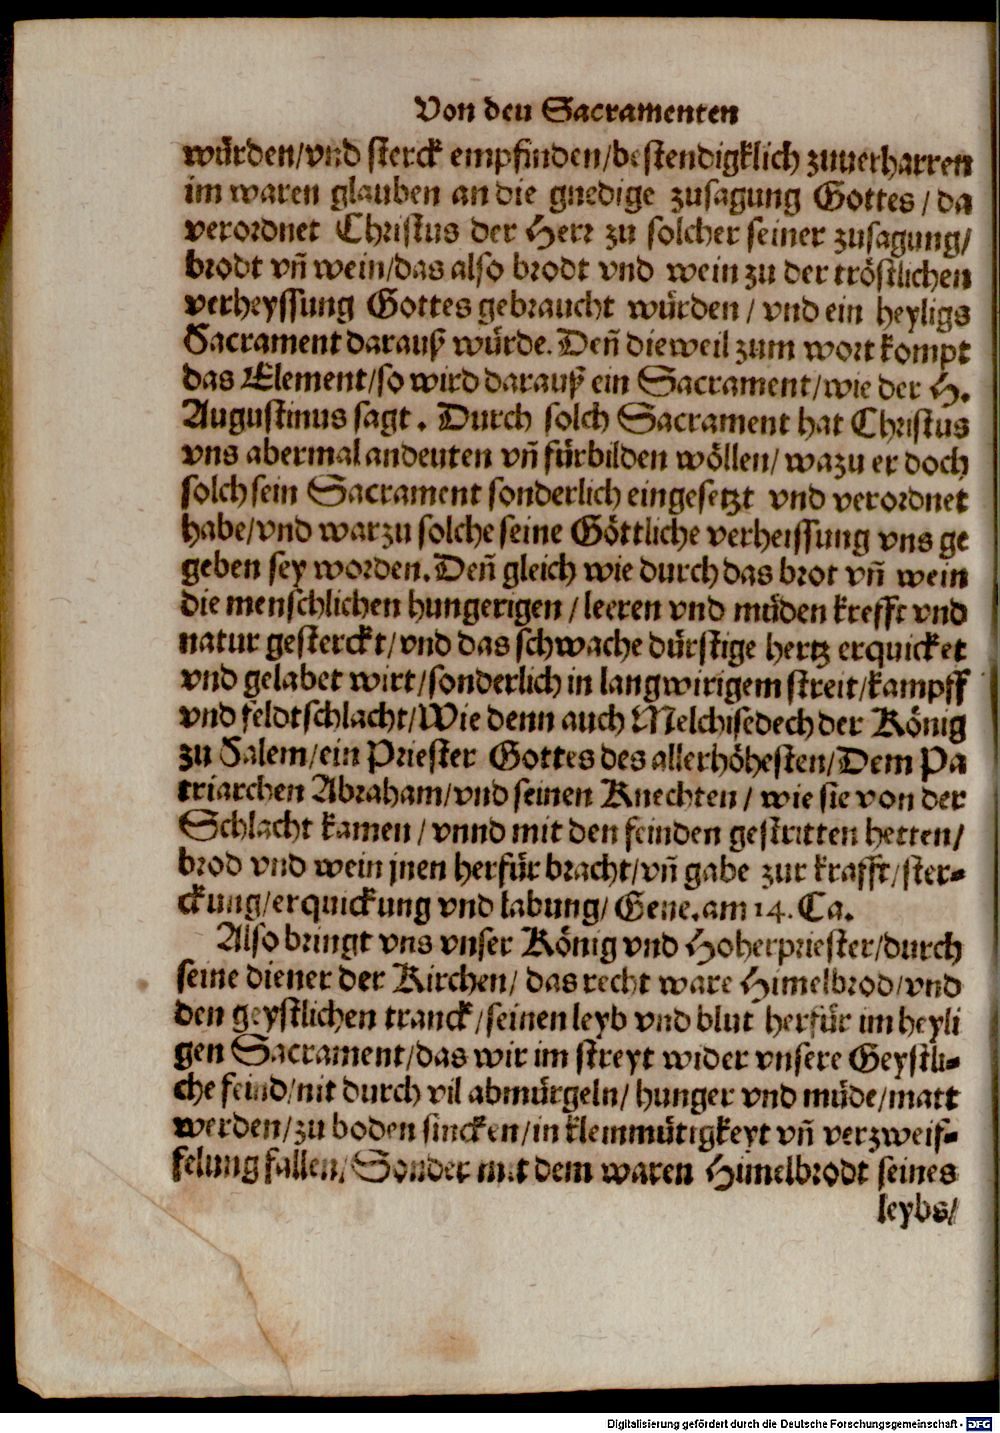 Von den Sacramenten
würden/vnd sterck empfinden/bestendigklich zuuerharren
im waren glauben an die gnedige zusagung Gottes/da
verordnet Christus der Herr zu solcher seiner zusagung/
brodt vñ wein/das also brodt vnd wein zu der tröstlichen
verheyssung Gottes gebraucht würden/vnd ein heyligs
Sacrament darauß würde. Deñ dieweil zum wort kompt
das Element/so wird darauß ein Sacrament/wie der H.
Augustinus sagt. Durch solch Sacrament hat Christus
vns abermal andeuten vñ fürbilden wöllen/wazu er doch
solch sein Sacrament sonderlich eingesetzt vnd verordnet
habe/vnd warzu solche seine Göttliche verheissung vns ge
geben sey worden. Deñ gleich wie durch das brot vñ wein
die menschlichen hungerigen/leeren vnd müden krefft vnd
natur gesterckt/vnd das schwache dürstige hertz erquicket
vnd gelabet wirt/sonderlich in langwirigem streit/kampff
vnd feldtschlacht/Wie denn auch Melchisedech der König
zu Salem/ein Priester Gottes des allerhöhesten/Dem Pa
triarchen Abraham/vnd seinen Knechten/wie sie von der
Schlacht kamen/vnnd mit den feinden gestritten hetten/
brod vnd wein jnen herfür bracht/vñ gabe zur krafft/ster-
ckung/erquickung vnd labung/Gene.am 14. Ca.
Also bringt vns vnser König vnd Hoherpriester/durch
seine diener der Kirchen/das recht ware Himelbrod/vnd
den geystlichen tranck/seinen leyb vnd blut herfür im heyli
gen Sacrament/das wir im streyt wider vnsere Geystli-
che feind/nit durch vil abmürgeln/hunger vnd müde/matt
werden/zu boden sincken/in kleinmütigkeyt vñ verzweif-
felung fallen/Sonder mit dem waren Himelbrodt seines
leybs/
Digitalisierung gefördert durch die Deutsche Forschungsgemeinschaft - DFG